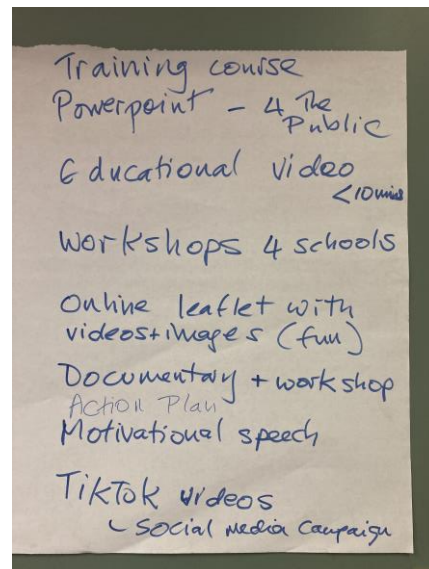 Training course
Powerpoint - 4 The
Public
Educational video
<10mins
Workshops 4 schools
Online leaflet with
videos+images (fun)
Documentary + workshop
Action Plan
Motivational speech
TikTok videos
Social Media Campaign